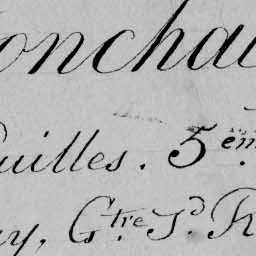 onchai
uilles. 5ém
y, Gtre J.d R